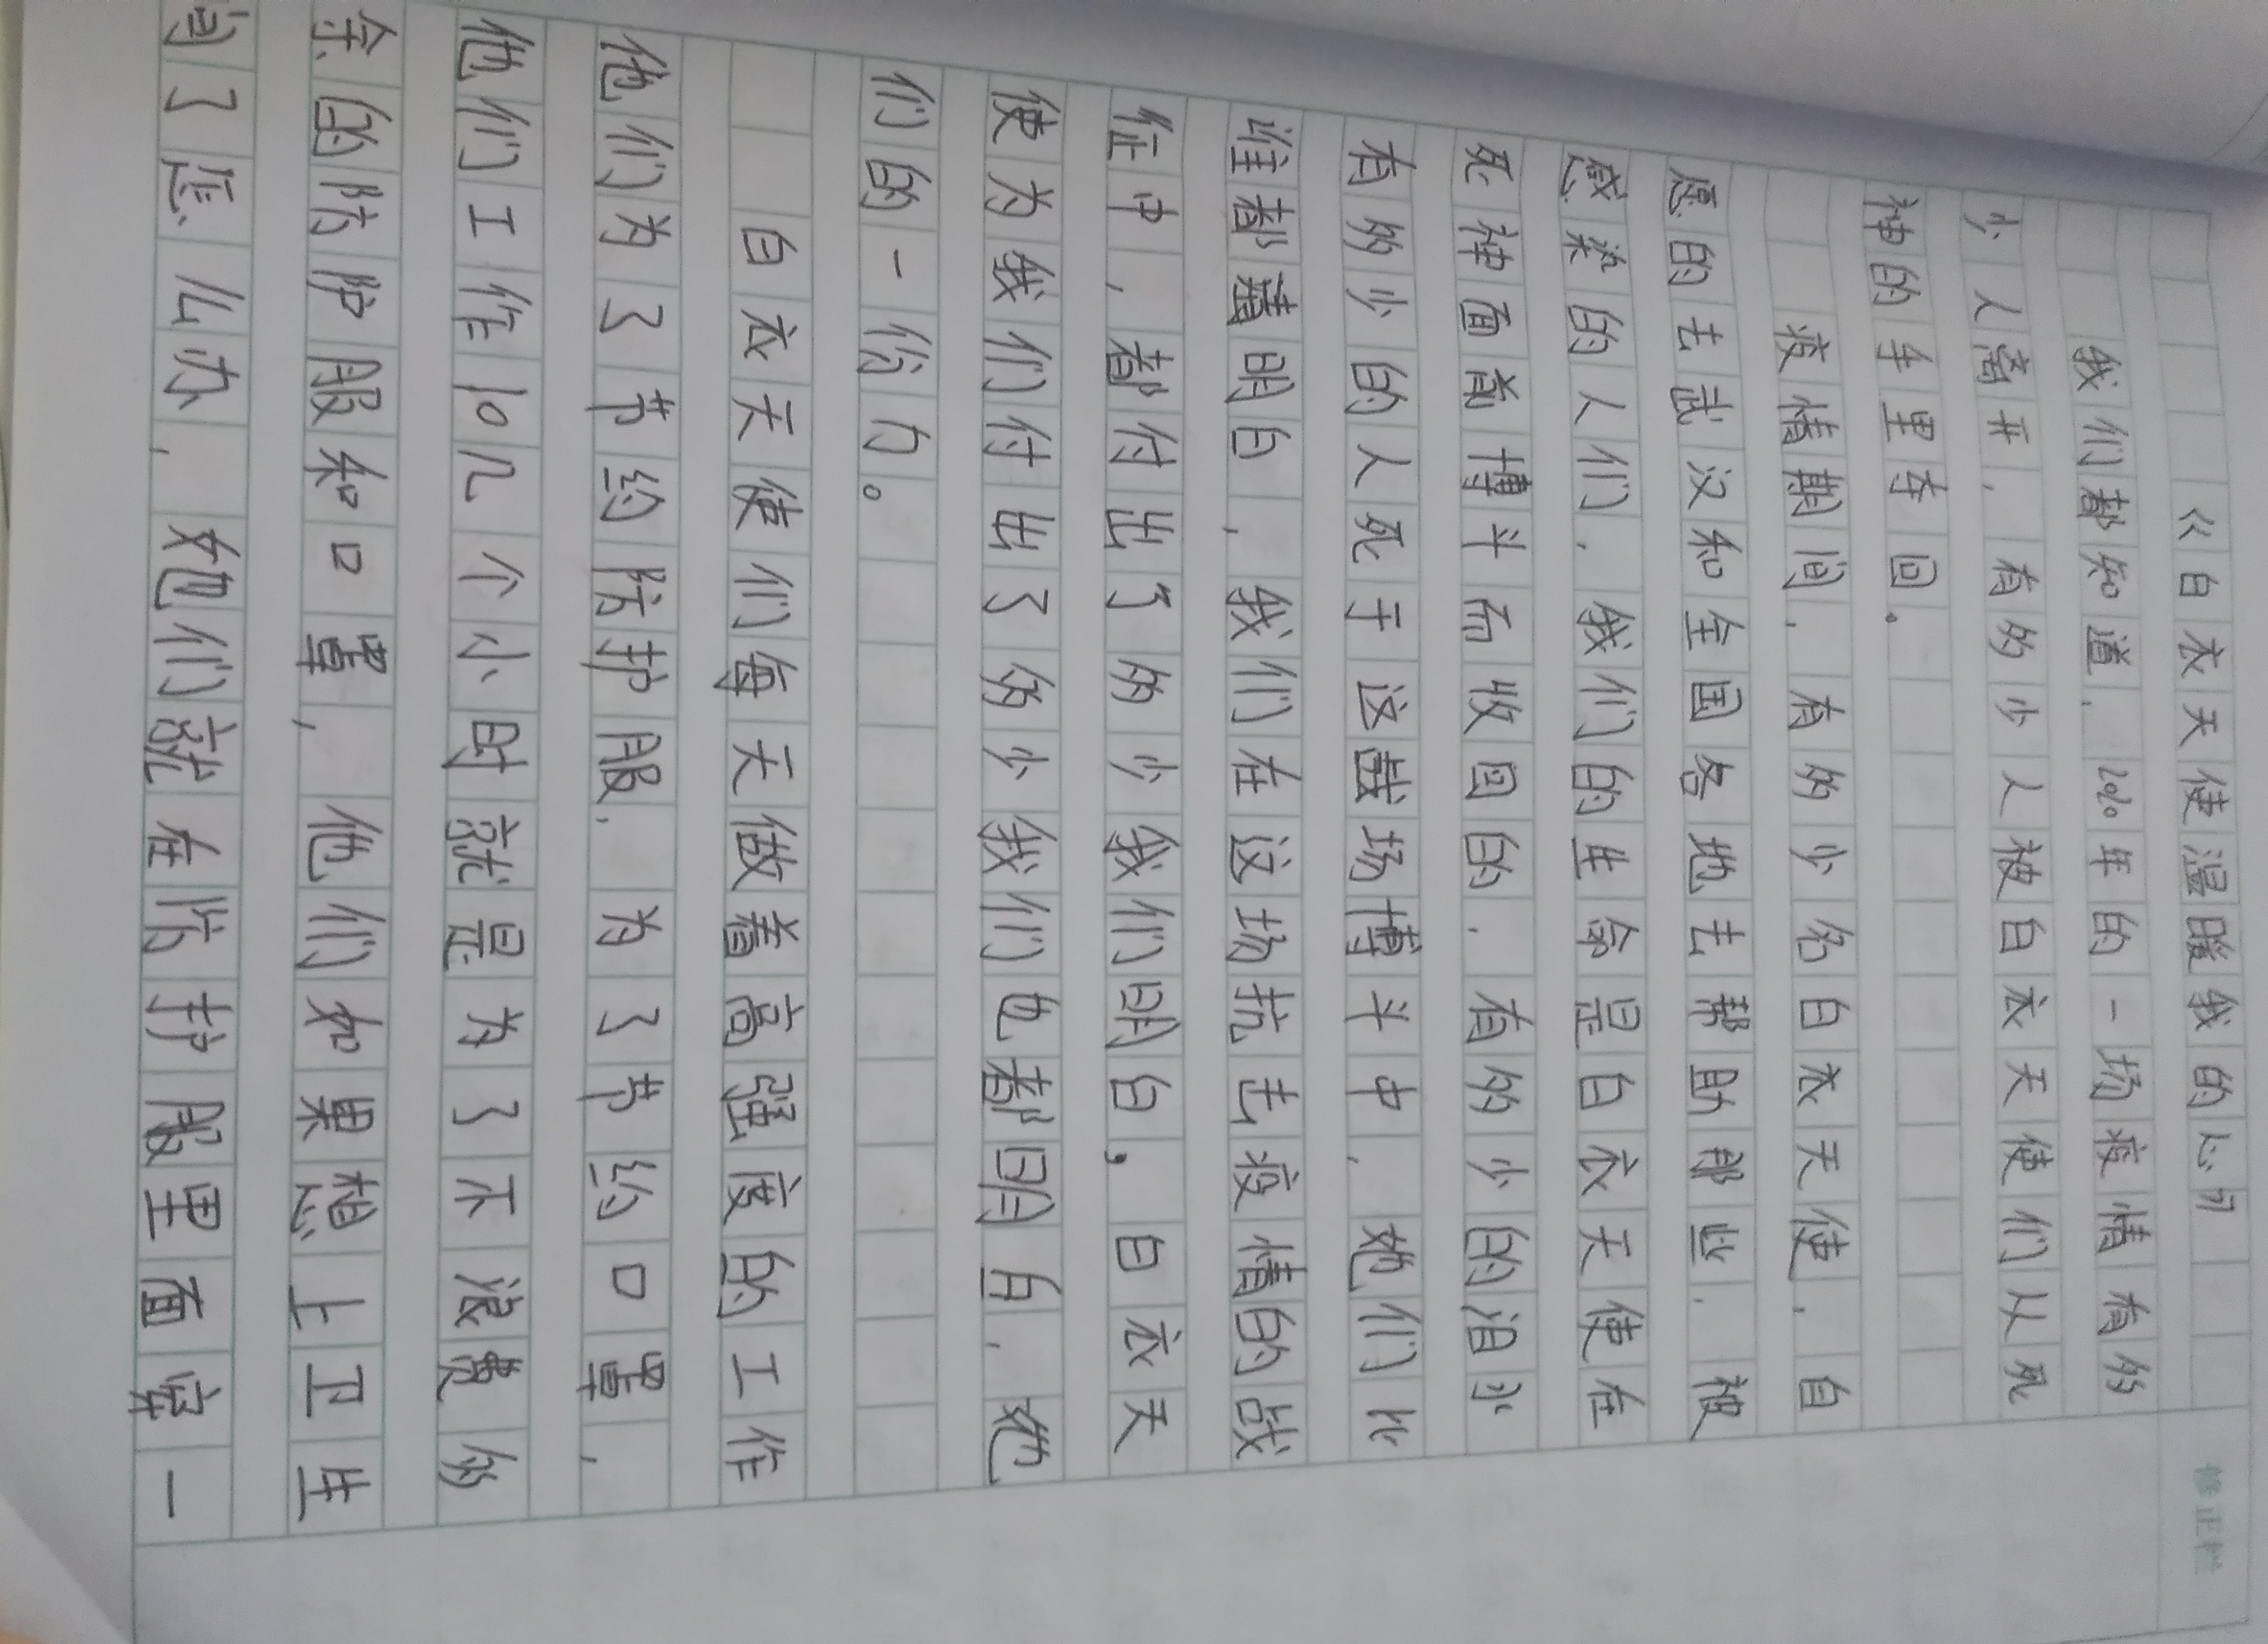 《白衣天使温暖我的心》
我们都知道，2020年的一场疫情有多
少人离开，有多少人被白衣天使们从死
神的手里夺回。
疫情期间，有多少名白衣天使，自
愿的去武汉和全国各地去帮助那些，被
感染的人们，我们的生命是白衣天使在
死神面前博斗而收回的，有多少的泪水
有多少的人死于这战场博斗中，她们比
谁都清明白，我们在这场抗击疫情的战
征中，都付出了多少我们明白。白衣天
使为我们付出了多少我们也都明白，她
们的一份力。
白衣天使们每天做着高强度的工作
他们为了节约防护服，为了节约口罩，
他们工作10几个小时就是为了不浪费多
余的防护服和口罩，他们如果想上卫生
间了怎么办，她们就在防护服里面穿一
修正栏